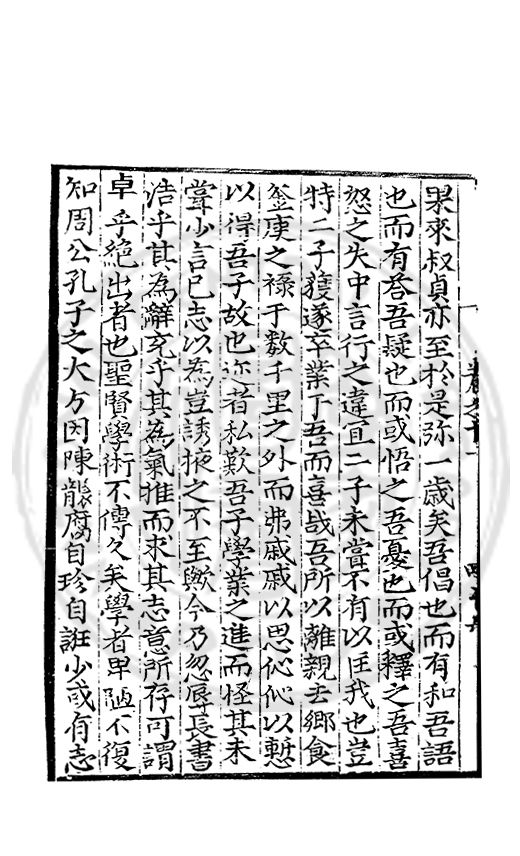 果來叔貞亦至於是弥一歲矣吾倡也而有和吾語
也而有荅吾疑也而或悟之吾憂也而或釋之吾喜
怒之失中言行之違宜二子未嘗不有以匡我也豈
特二子獲遂卒業丁吾而喜哉吾所以離親去鄉食
釜庾之禄于數千里之外而弗戚戚以思伈伈以慙
以得吾子故也迩者私歎吾子學業之進而怪其未
嘗少言已志以為豈誘掖之不至歟今乃忽辱長書
浩乎其為辭充乎其為氣推而求其志意所存可謂
卓乎絶出者也聖賢學術不傳久矣學者卑陋不復
知周公孔子之大方因陳骩腐自珍自誑少或有志